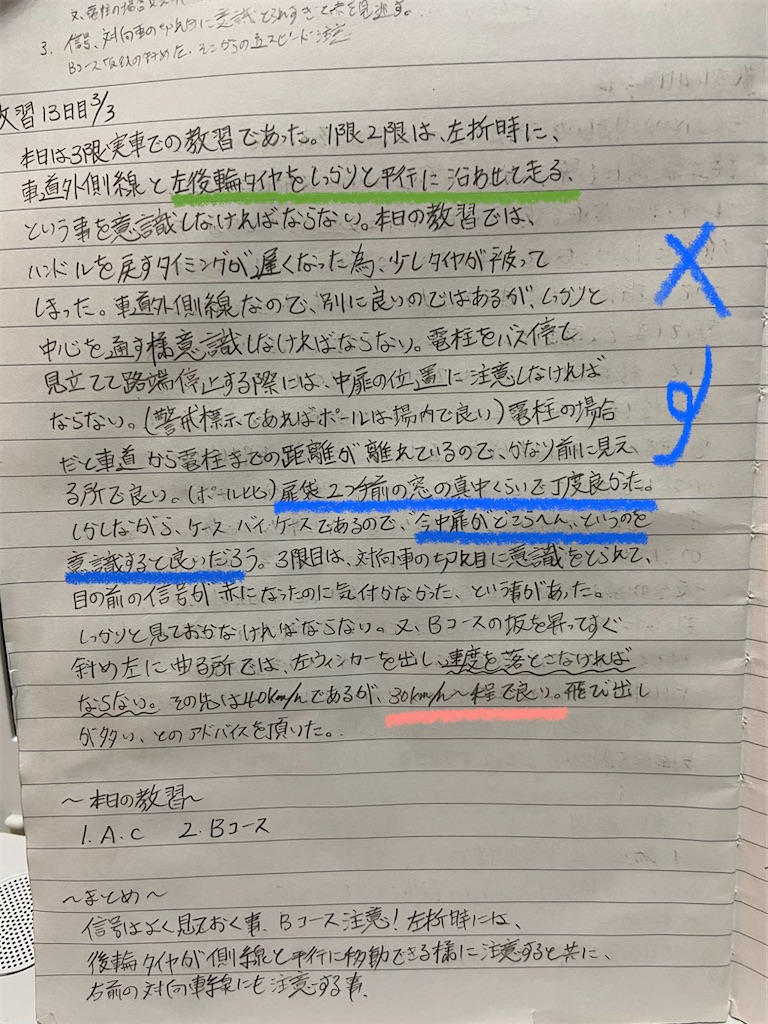 3. 信号、対向車の切れ目に意識とられすぎて赤を見逃す。
教習13日目3/3
本日は3限実車での教習であった。1限2限は、左折時に、
車道外側線と左後輪タイヤをしっかりと平行に沿わせて走る、
という事を意識しなければならない。本日の教習では、
ハンドルを戻すタイミングが遅くなった為、少しタイヤが被って
しまった。車道外側線なので、別に良いのではあるが、しっかりと
中心を通す様意識しなければならない。電柱をバス停て
見立てて路端停止する際には、中扉の位置に注意しなければ
ならない。(警戒標示であればポールは場内で良い)電柱の場合
だと車道から電柱までの距離が離れているので、かなり前に見え
る所で良い。(ポール比)扉袋2つ分前の窓の真中くらいで丁度良かった。
しかしながら、ケースバイケースであるので、今中扉がどこらへん、というのを
意識すると良いだろう。3限目は、対向車の切れ目に意識をとられて、
目の前の信号が赤になったのに気付かなかった、という事があった。
しっかりと見ておかなければならない。又、Bコースの坂を昇ってすぐ
斜め左に曲る所では、左ウィンカーを出し、速度を落とさなければ
ならない。その先は40km/hであるが、30km/h〜程で良い。飛び出し
が多い、とのアドバイスを頂いた。
〜本日の教習〜
1. A.C 2. Bコース
〜まとめ〜
信号はよく見ておく事、Bコース注意!左折時には、
後輪タイヤが側線と平行に移動できる様に注意すると共に、
右前の対向車線にも注意する事、